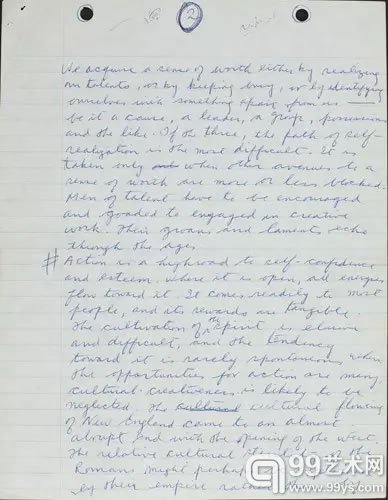 2
We acquire a sense of worth either by realizing
our talents, or by keeping busy, or by identifying
ourselves with something apart from us —
be it a cause, a leader, a group, possessions
and the like. Of the three, the path of self-
realization is the most difficult. It is
taken only when other avenues to a
sense of worth are more or less blocked.
Men of talent have to be encouraged
and goaded to engage in creative
work. Their groans and laments echo
through the ages.
# Action is a highroad to self-confidence
and esteem. Where it is open, all energies
flow toward it. It comes readily to most
people, and its rewards are tangible.
The cultivation of the spirit is elusive
and difficult, and the tendency
toward it is rarely spontaneous. Where
the opportunities for action are many
cultural creativeness is likely to be
neglected. The cultural cultural flowering
of New England came to an almost
abrupt end with the opening of the West.
The relative cultural sterility of the
Romans might perhaps
by their empire rather
99艺术网
www.99ys.com